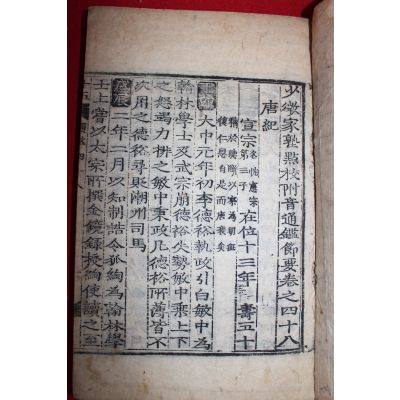 少微家塾點校附音通鑑節要卷之四十八
唐紀
宣宗名忱憲宗第十三子在位十三年壽五十
大中元年初李德裕執政引白敏中為
翰林學士及武宗崩德裕失勢敏中乘上下
之怒竭力排之敏中秉政凡德裕所薄皆不
次用之德裕尋貶潮州司馬
戊辰二年二月以知制誥令狐綯為翰林學
士上嘗以太宗所撰金鏡錄授綯使讀之至